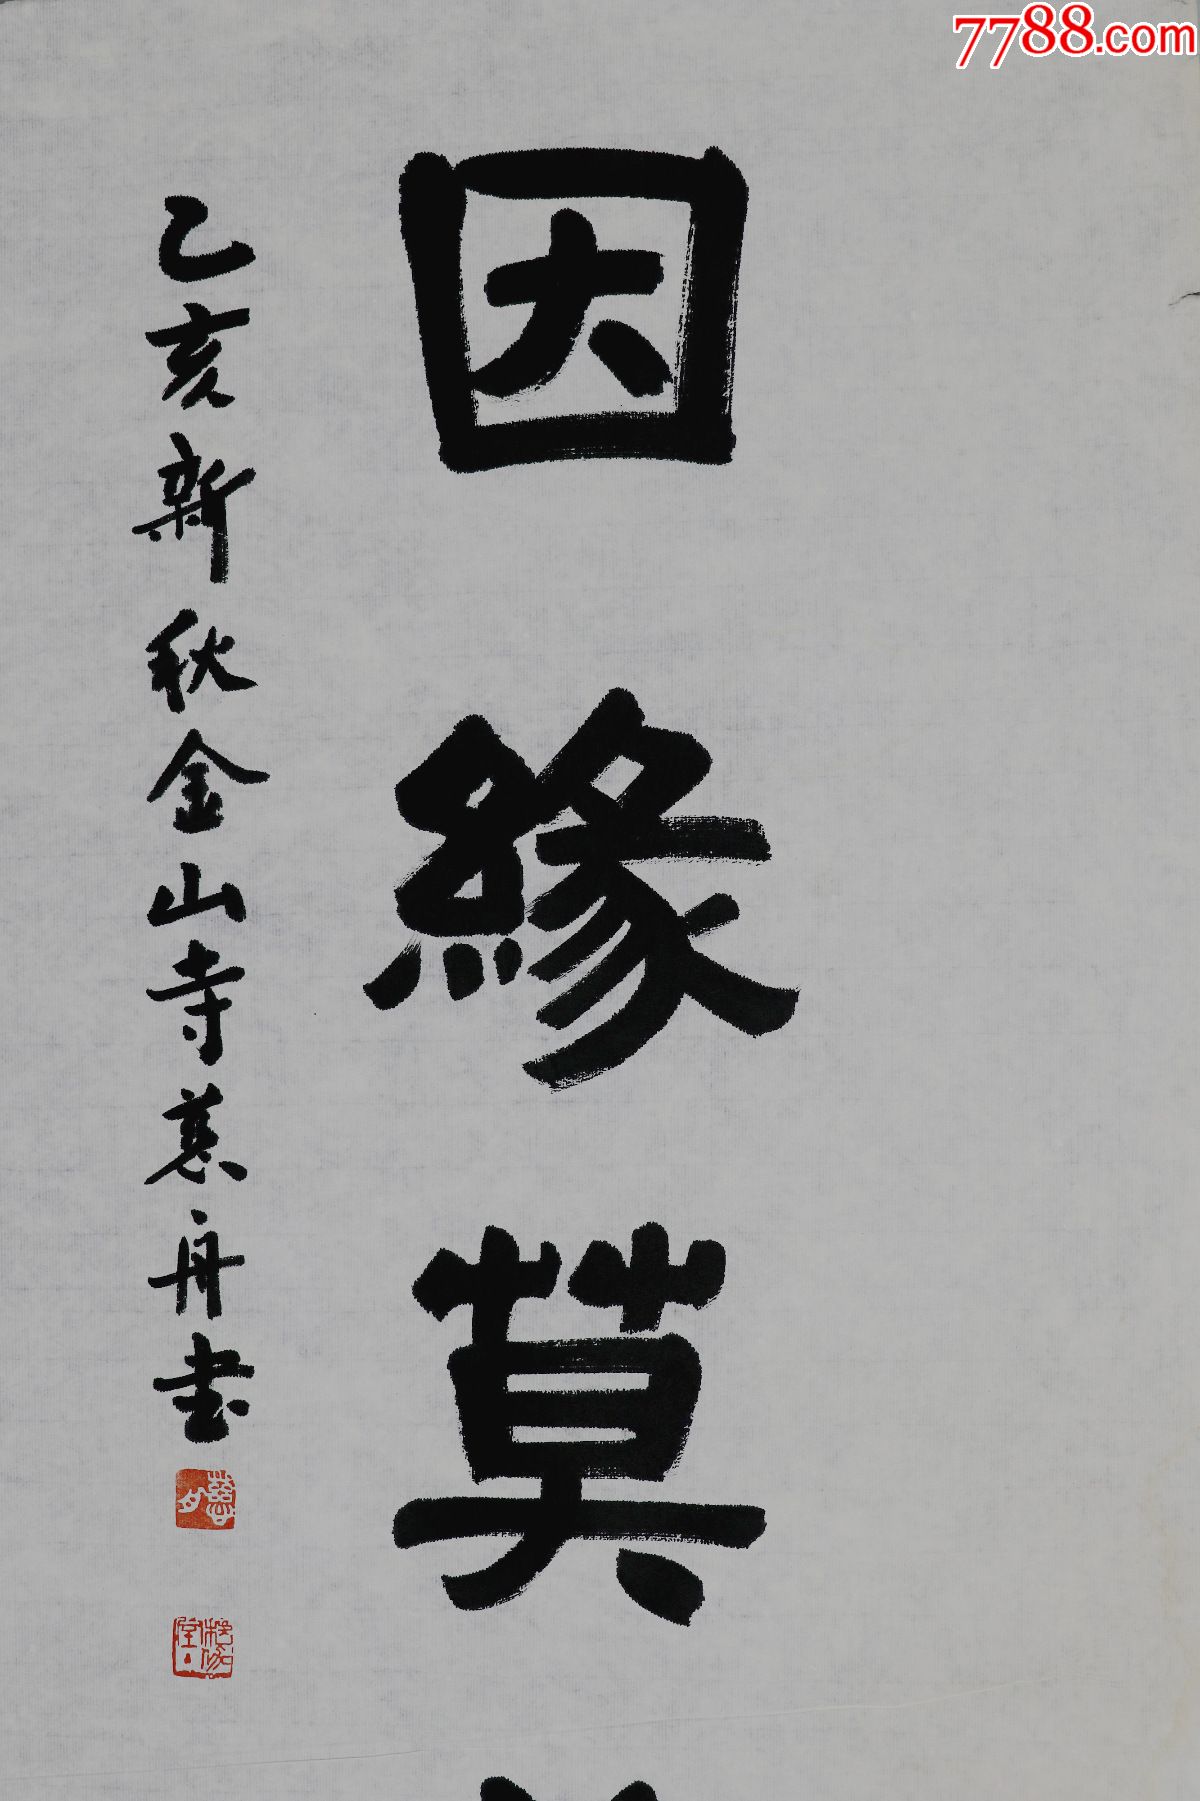 7788.com
因緣莫
乙亥新秋金山寺慈舟书